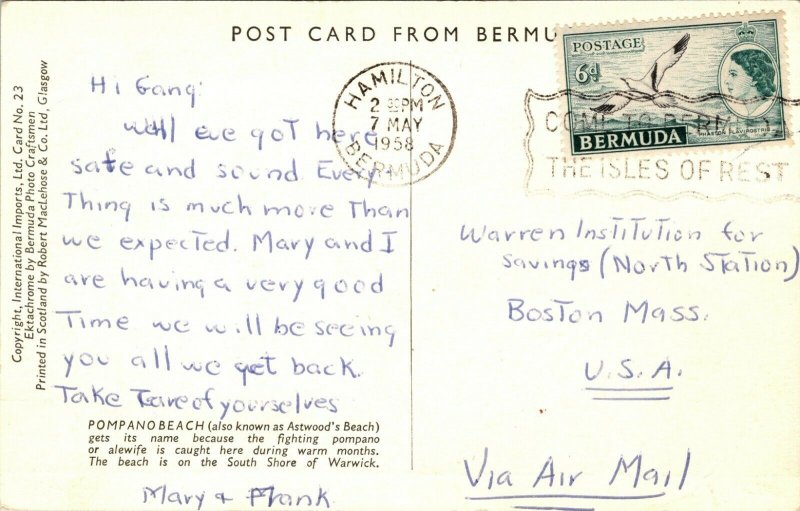 POST CARD FROM BERMU
Copyright, International Imports, Ltd. Card No. 23
Ektachrome by Bermuda Photo Craftsmen
Printed in Scotland by Robert MacLehose & Co. Ltd, Glasgow
Hi Gang:
Well we got here
safe and sound Every
Thing is much more Than
we expected. Mary and I
are having a very good
Time we will be seeing
you all we get back.
Take Care of yourselves
POMPANO BEACH (also known as Astwood's Beach)
gets its name because the fighting pompano
or alewife is caught here during warm months.
The beach is on the South Shore of Warwick.
Mary & Frank
HAMILTON
2 PM
7 MAY
1958
BERMUDA
POSTAGE
6d
BERMUDA
PHAETON FLAVIROSTRIS
COME TO BERMUDA
THE ISLES OF REST
Warren Institution for
Savings (North Station)
Boston Mass.
U.S.A.
Via Air Mail